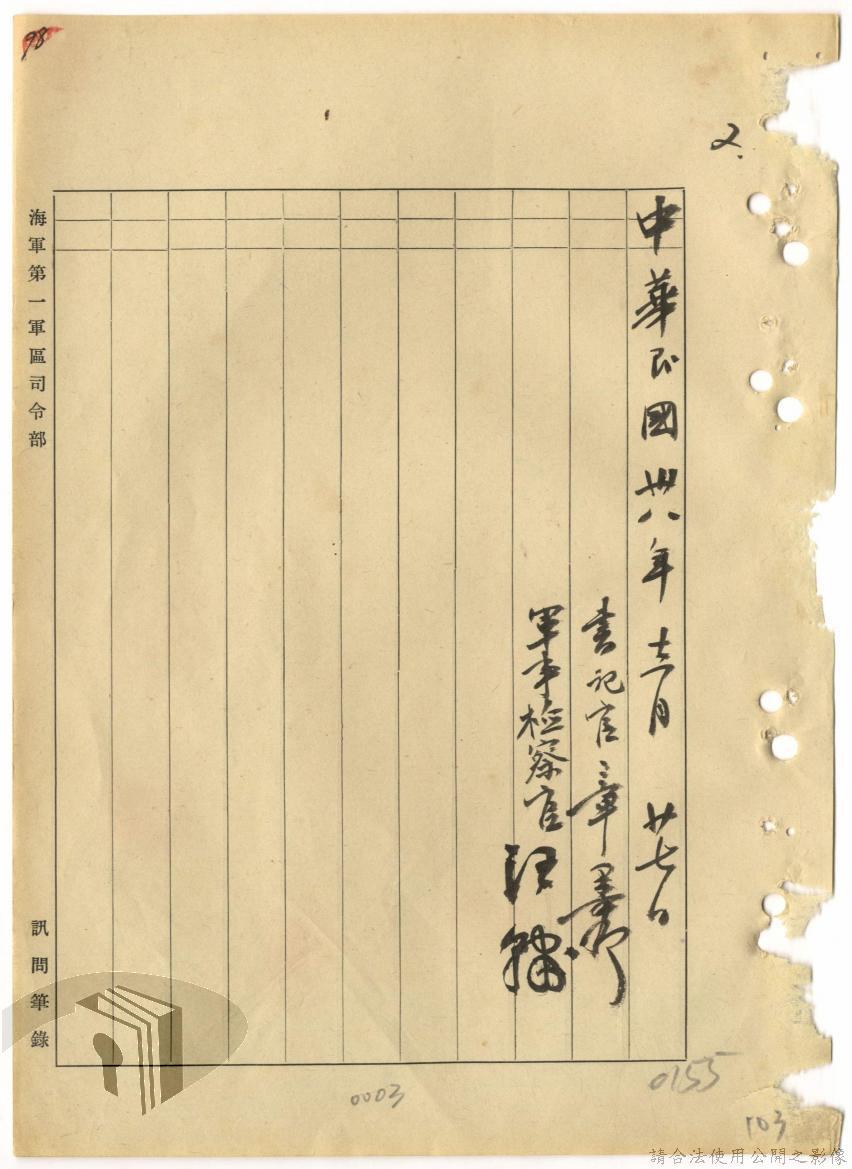 98
2.
中華民國卅八年十二月廿七日
書記官章
軍事檢察官
海軍第一軍區司令部
訊問筆錄
0003
0155
103
請合法使用公開之影像